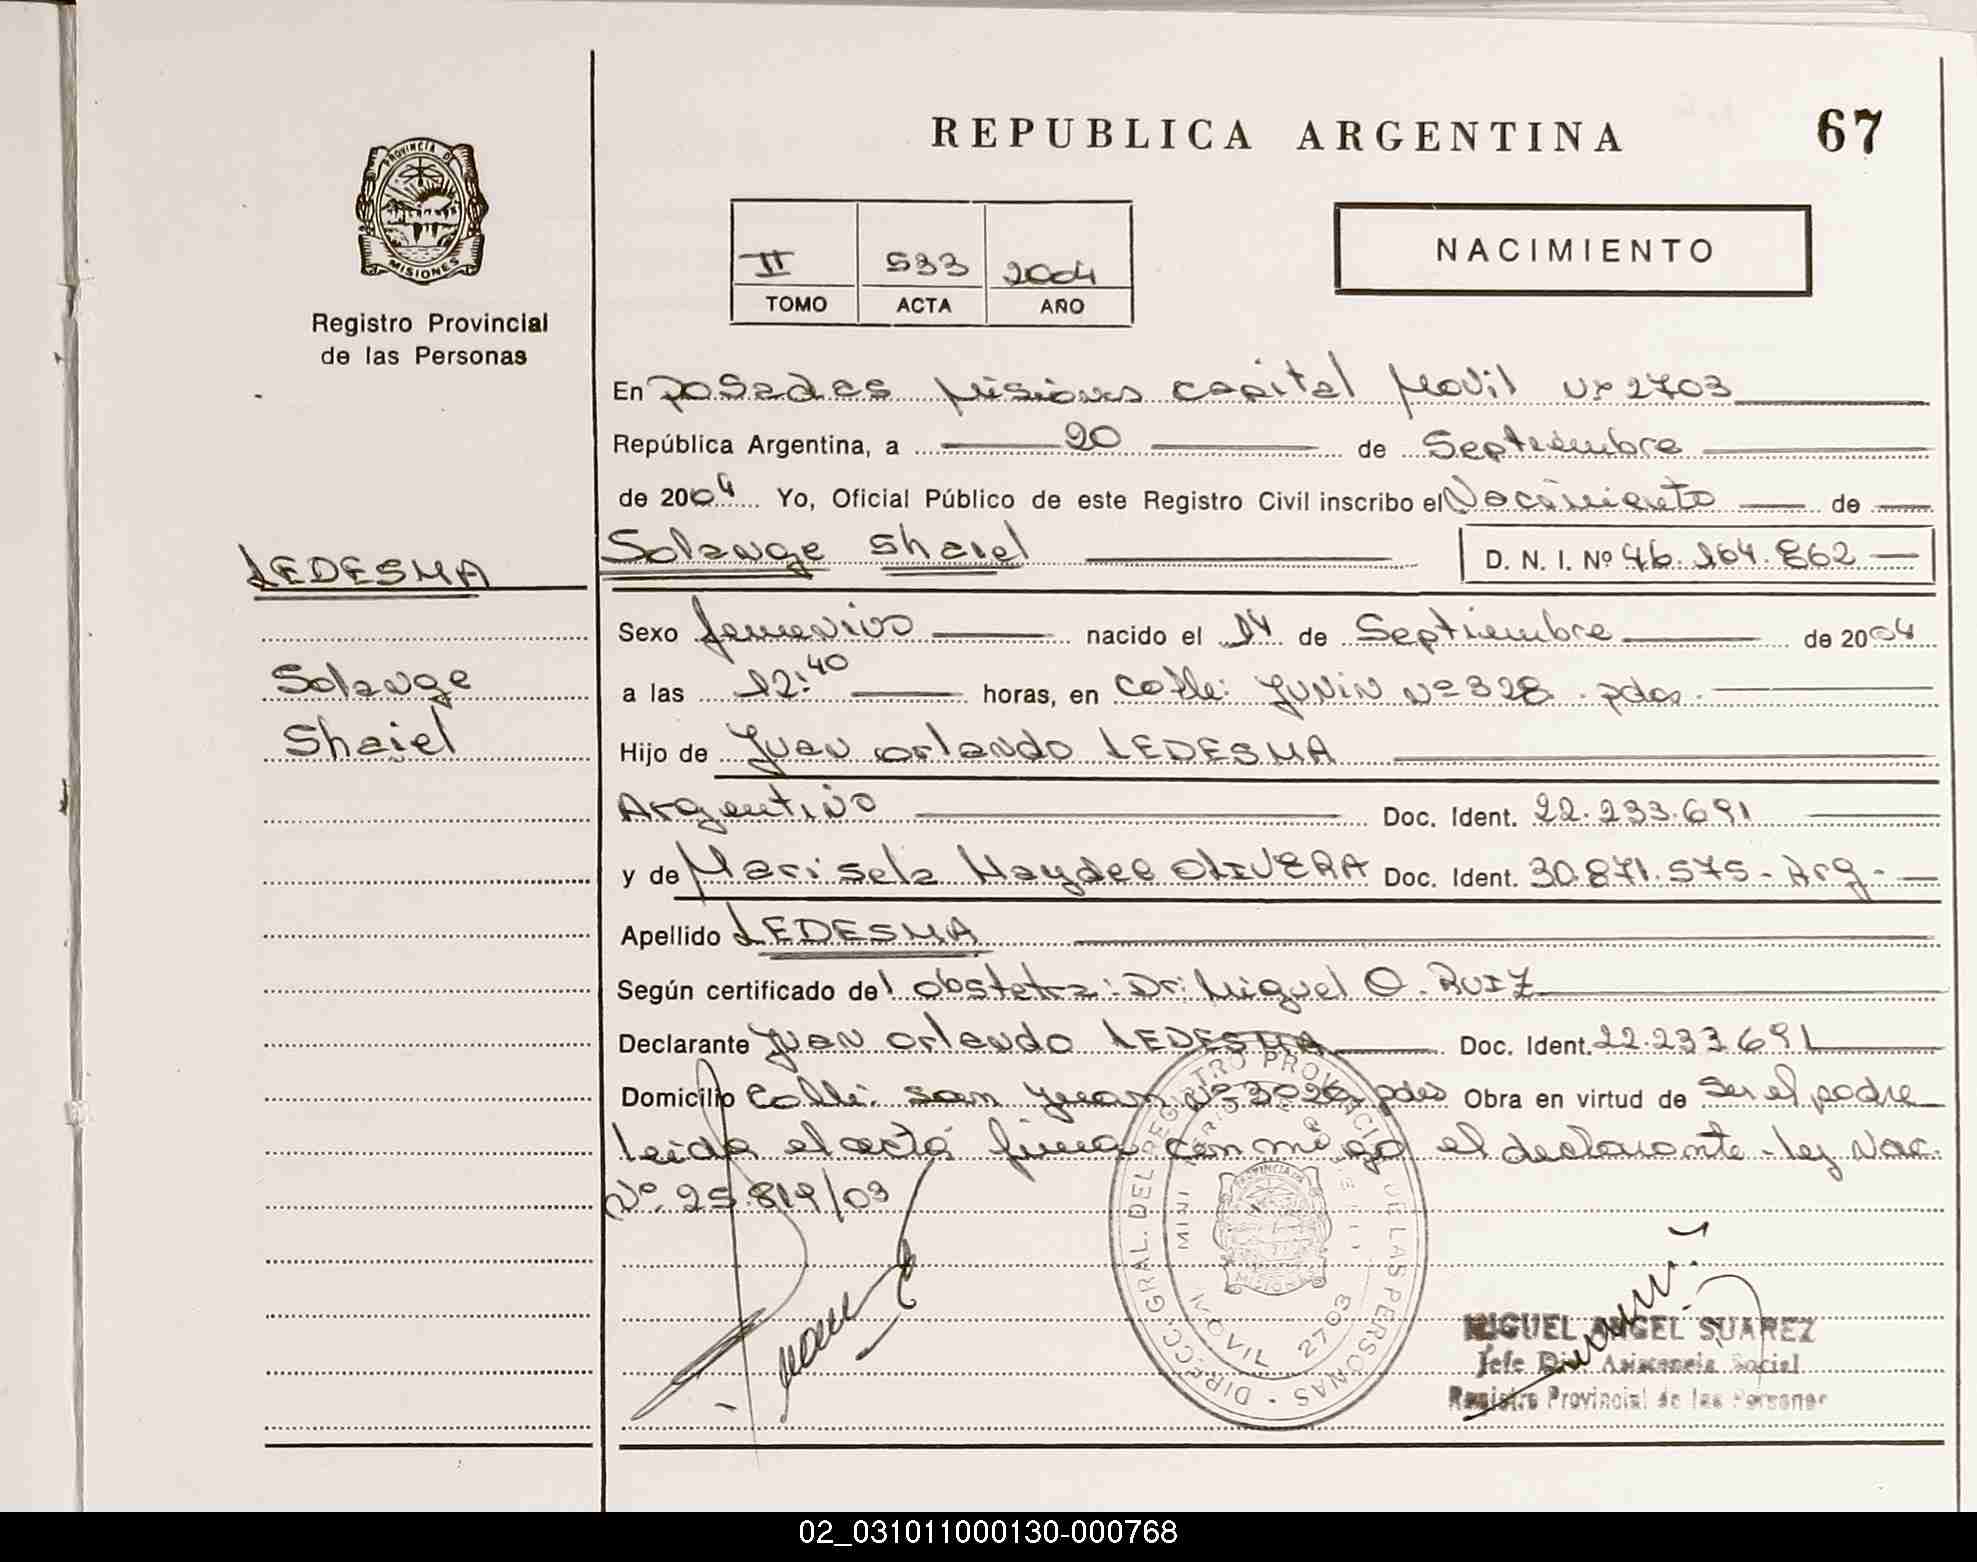 REPUBLICA ARGENTINA
67
PROVINCIA DE
MISIONES
Registro Provincial
de las Personas
II 533 2004
TOMO ACTA AÑO
NACIMIENTO
En Posadas Misiones capital Movil Nº 2703
República Argentina, a 20 de Septiembre
de 2004 Yo, Oficial Público de este Registro Civil inscribo el Nacimiento de
LEDESMA
Solange Shaiel
D. N. I. Nº 46.164.862
Solange
Shaiel
Sexo femenino nacido el 14 de Septiembre de 2004
a las 12:40 horas, en Calle: Junin Nº 328. pdas.
Hijo de Juan Orlando LEDESMA
Argentino Doc. Ident. 22.233.691
y de Marisela Haydee OLIVERA Doc. Ident. 30.871.575 - Arg -
Apellido LEDESMA
Según certificado del obstetra: Dr. Miguel O. RUIZ
Declarante Juan Orlando LEDESMA Doc. Ident. 22.233.691
Domicilio Calle: San Juan Nº 3026 pdas Obra en virtud de Ser el padre
Leida el acta firma conmigo el declarante - ley Nac.
Nº. 25.819/03
DIRECC. GRAL. DEL REGISTRO PROVINCIAL DE LAS PERSONAS
MOVIL 2703
MISIONES
MIGUEL ANGEL SUAREZ
Jefe Div. Asistencia Social
Registro Provincial de las Personas
02_031011000130-000768